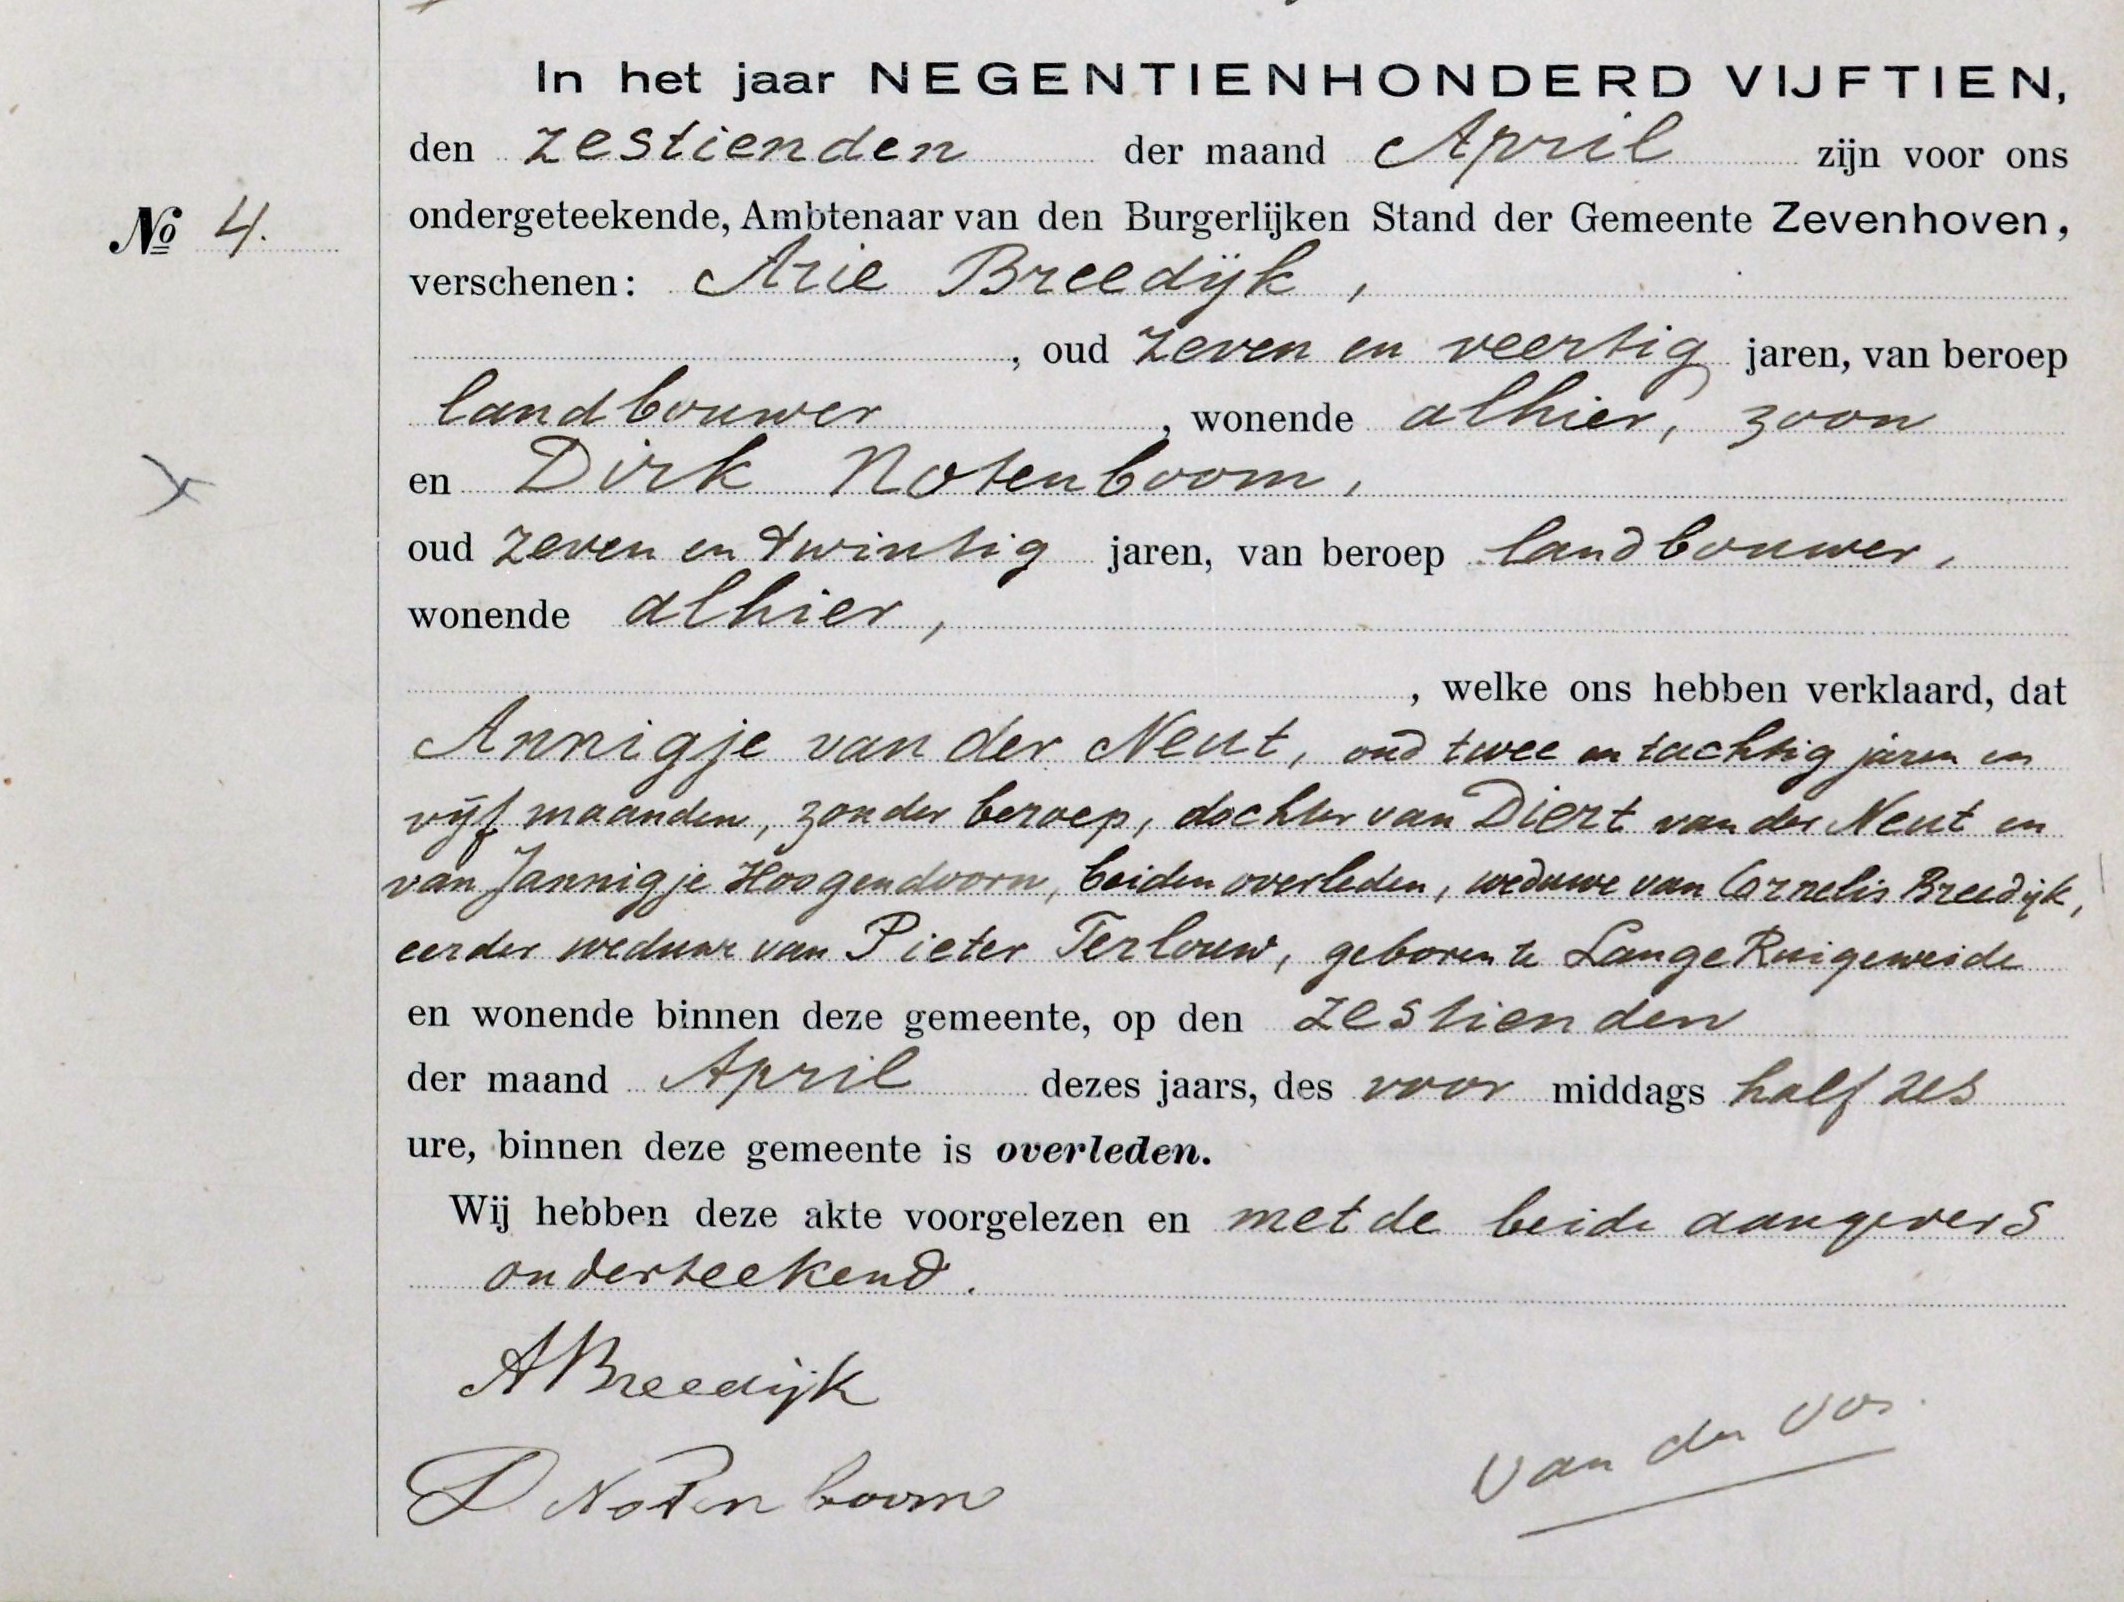 In het jaar NEGENTIENHONDERD VIJFTIEN,
den zestienden der maand April zijn voor ons
No 4.
ondergeteekende, Ambtenaar van den Burgerlijken Stand der Gemeente Zevenhoven,
verschenen: Arie Breedijk,
, oud zeven en veertig jaren, van beroep
landbouwer, wonende alhier, zoon
en Dirk Notenboom,
oud zeven en twintig jaren, van beroep landbouwer,
wonende alhier,
, welke ons hebben verklaard, dat
Annigje van der Neut, oud twee en tachtig jaren en
vijf maanden, zonder beroep, dochter van Diert van der Neut en
van Jannigje Hoogendoorn, beiden overleden, weduwe van Cornelis Breedijk,
eerder weduwe van Pieter Terlouw, geboren te Lange Ruigeweide
en wonende binnen deze gemeente, op den zestienden
der maand April dezes jaars, des voor middags half zes
ure, binnen deze gemeente is overleden.
Wij hebben deze akte voorgelezen en met de beide aangevers
onderteekend.
ABreedijk
D Notenboom
van der Vos.